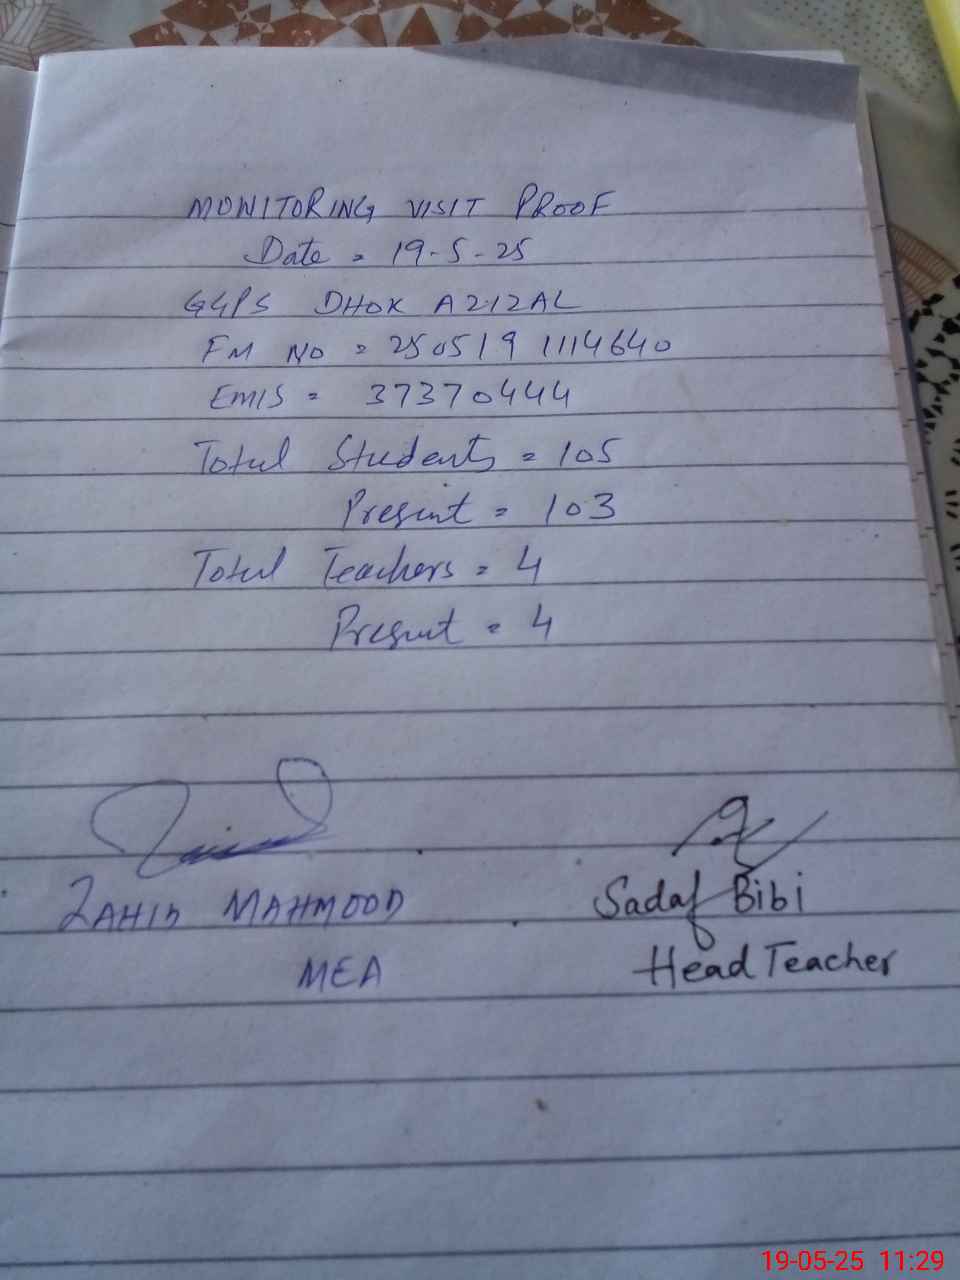 MONITORING VISIT PROOF
Date = 19-5-25
GGPS DHOK AZIZAL
FM NO = 250519 1114640
EMIS = 37370444
Total Students = 105
Present = 103
Total Teachers = 4
Present = 4
ZAHID MAHMOOD
Sadaf Bibi
MEA
Head Teacher
19-05-25 11:29